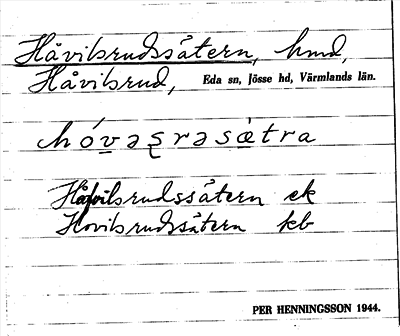 Håvilsrudssätern, hmd,
Håvilsrud, Eda sn, Jösse hd, Värmlands län.
hó̲vəʂrəsὰ̲tra
Håfvilsrudssätern ek
Hovilsrudssätern kb
PER HENNINGSSON 1944.